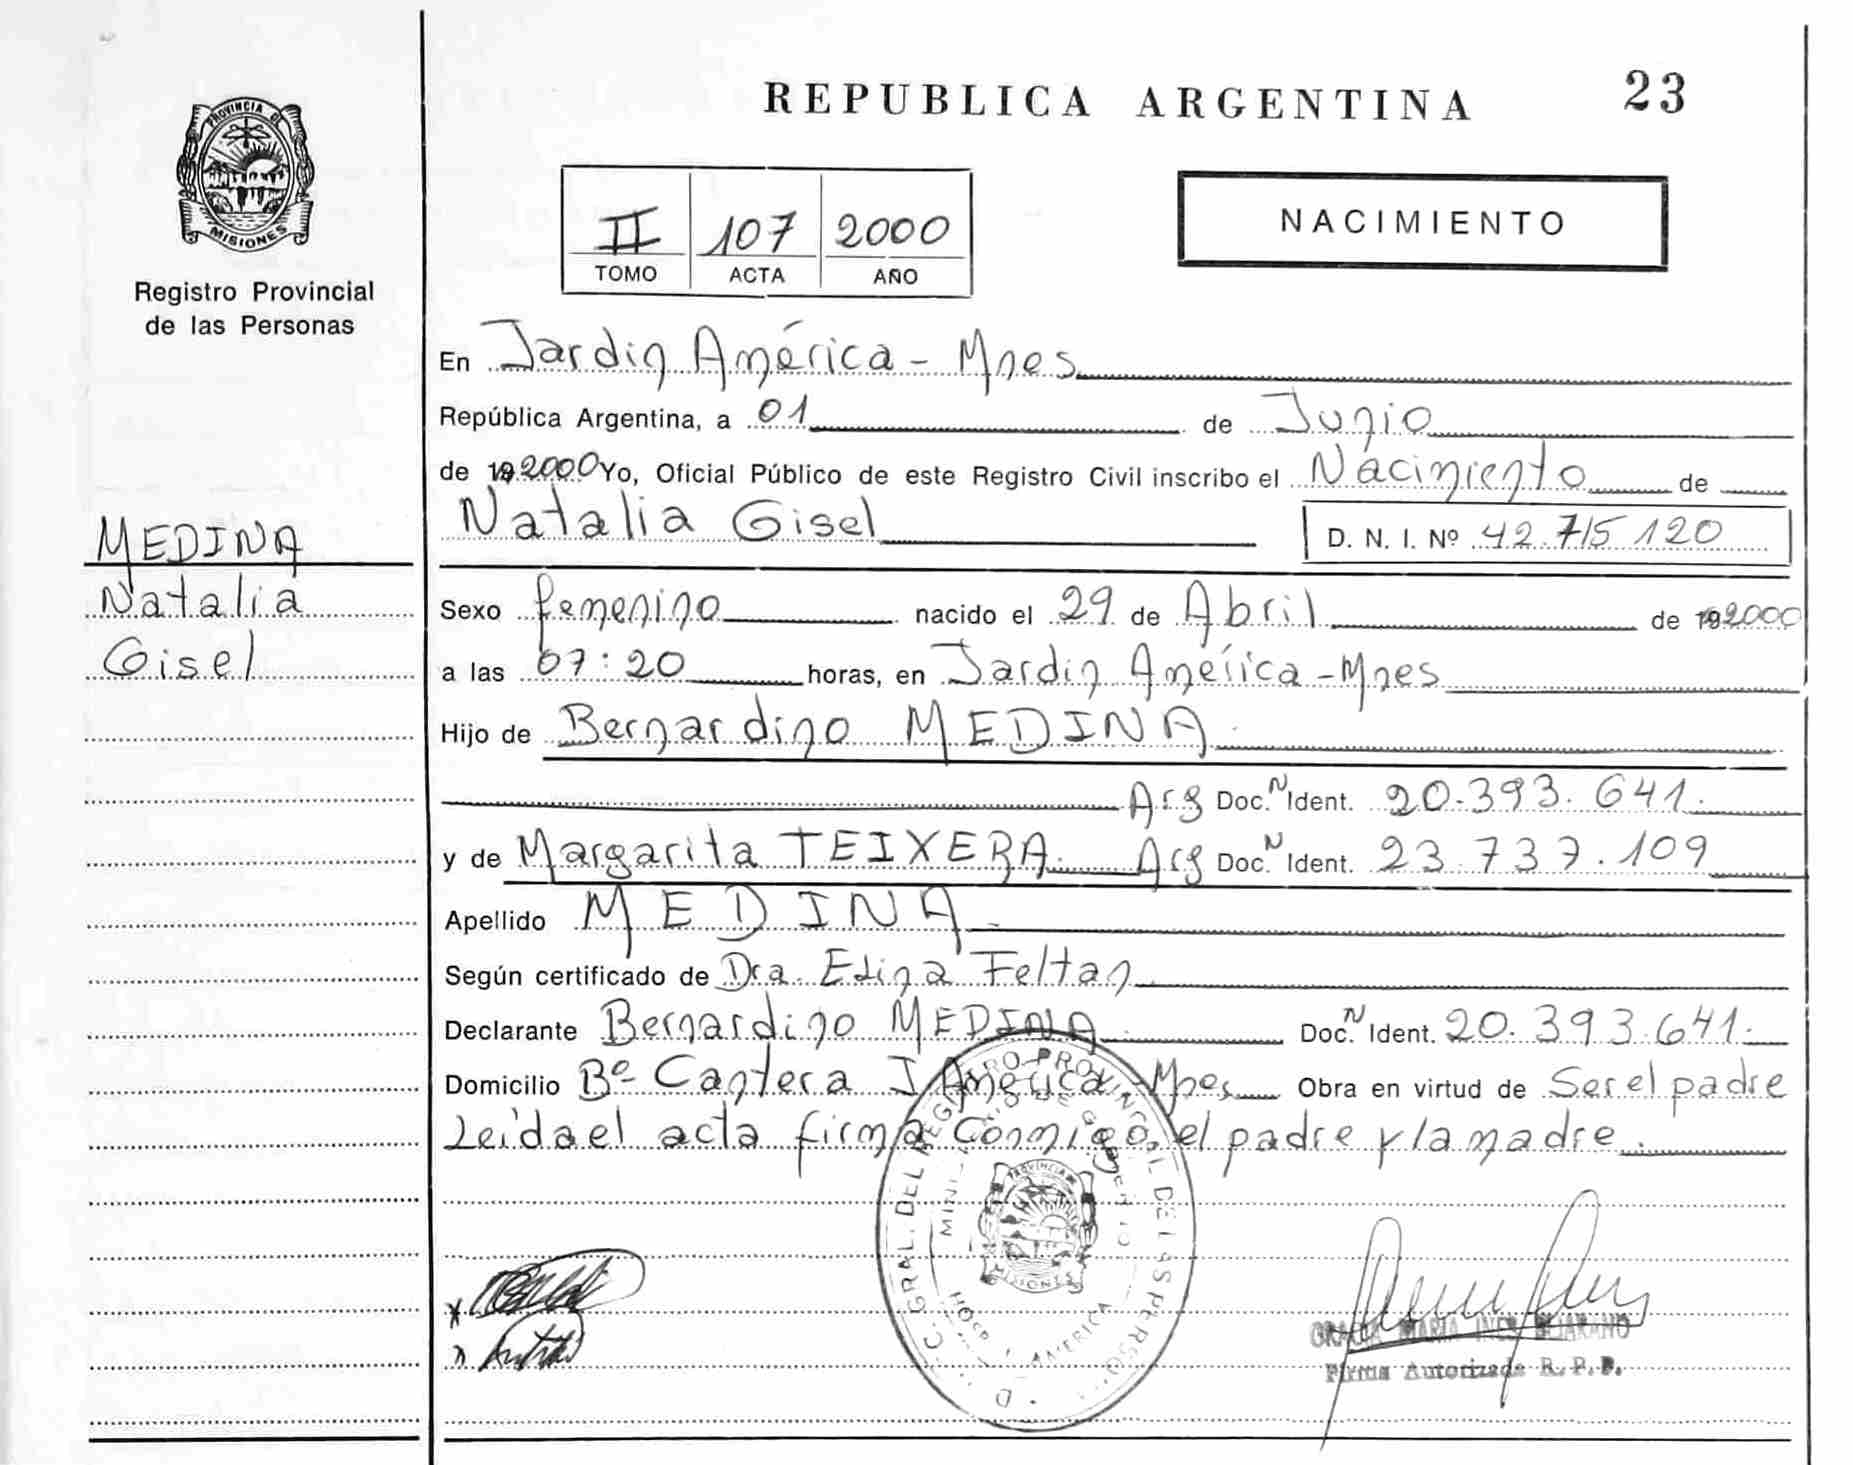 REPUBLICA ARGENTINA
23
PROVINCIA DE
MISIONES
Registro Provincial
de las Personas
II 107 2000
TOMO ACTA AÑO
NACIMIENTO
En Jardin América - Mnes
República Argentina, a 01 de Junio
de 19 2000 Yo, Oficial Público de este Registro Civil inscribo el Nacimiento de
Natalia Gisel D. N. I. Nº 42.715 120
MEDINA
Natalia
Gisel
Sexo femenino nacido el 29 de Abril de 19 2000
a las 07:20 horas, en Jardin América - Mnes
Hijo de Bernardino MEDINA
Arg Doc. N Ident. 20.393.641.
y de Margarita TEIXERA Arg Doc. N Ident. 23.737.109
Apellido MEDINA
Según certificado de Dra. Edina Feltan
Declarante Bernardino MEDINA Doc. N Ident. 20.393.641.
Domicilio Bº Cantera J. América - Mnes Obra en virtud de Ser el padre
Leida el acta firma conmigo, el padre y la madre.
GRAL. DEL REGISTRO PROVINCIAL DE LAS PERSO
MINISTERIO DE GOBIERNO
PROVINCIA
MISIONES
AMERICA
GRACIA MARIA INES BEJARANO
Firma Autorizada R. P. P.